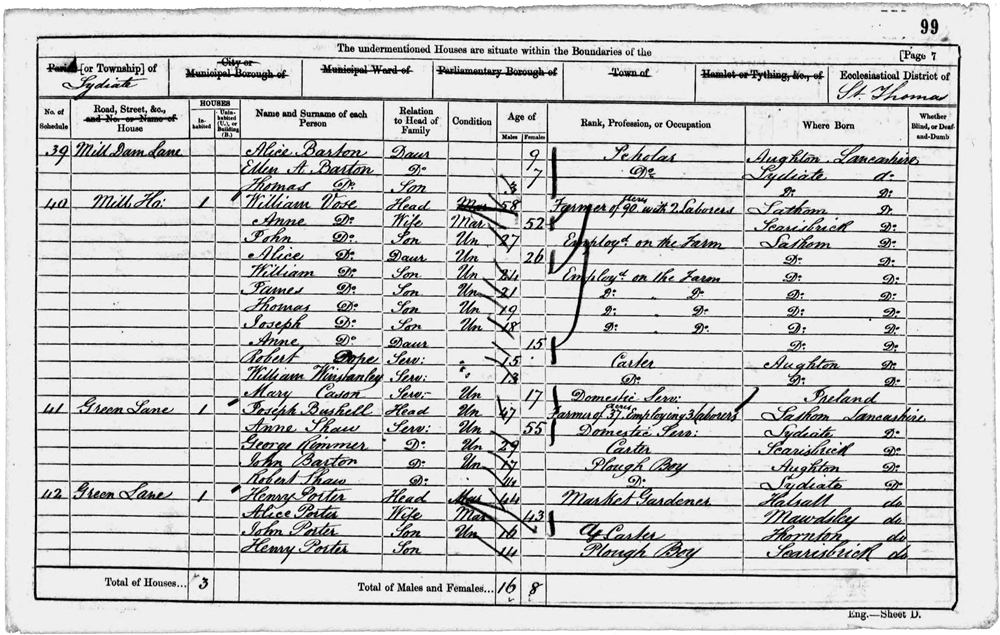 99
The undermentioned Houses are situate within the Boundaries of the
[Page 7
Parish [or Township] of
Sydiate
City or Municipal Borough of
Municipal Ward of
Parliamentary Borough of
Town of
Hamlet or Tything, &c., of
Ecclesiastical District of
St. Thomas
No. of Schedule
Road, Street, &c., and No. or Name of House
HOUSES
Inhabited
Uninhabited (U.), or Building (B.)
Name and Surname of each Person
Relation to Head of Family
Condition
Age of
Males
Females
Rank, Profession, or Occupation
Where Born
Whether Blind, or Deaf-and-Dumb
39 Mill Dam Lane Alice Barton Daur 9 Scholar Aughton Lancashire
Ellen A Barton Do 7 Do Lydiate do
Thomas Do Son 3 Do Do
40 Mill Ho: 1 William Vose Head Mar 58 Farmer of 90 Acres with 2 Laborers Lathom Do
Anne Do Wife Mar 52 Scarisbrick Do
John Do Son Un 27 Employd on the Farm Lathom Do
Alice Do Daur Un 26 Do Do
William Do Son Un 24 Employd on the Farm Do Do
James Do Son Un 21 Do " Do Do Do
Thomas Do Son Un 19 Do Do Do Do
Joseph Do Son Un 18 Do Do Do Do
Anne Do Daur 15 Do Do
Robert Serv: " 15 Carter Aughton Do
William Winstanley Serv: " 13 Do Do Do
Mary Cason Serv: Un 17 Domestic Serv: Ireland
41 Green Lane 1 Joseph Bushell Head Un 47 Farmer of 37 Acres Employing 3 laborers Lathom Lancashire
Anne Shaw Serv: Un 55 Domestic Serv: Lydiate Do
George Rimmer Do Un 29 Carter Scarisbrick Do
John Barton Do Un 17 Plough Boy Aughton Do
Robert Shaw Do 14 Do Lydiate Do
42 Green Lane 1 Henry Porter Head Mar 44 Market Gardener Halsall do
Alice Porter Wife Mar 43 Mawdsley do
John Porter Son Un 16 Carter Thornton do
Henry Porter Son 14 Plough Boy Scarisbrick do
Total of Houses... 3
Total of Males and Females... 16 8
Eng.—Sheet D.